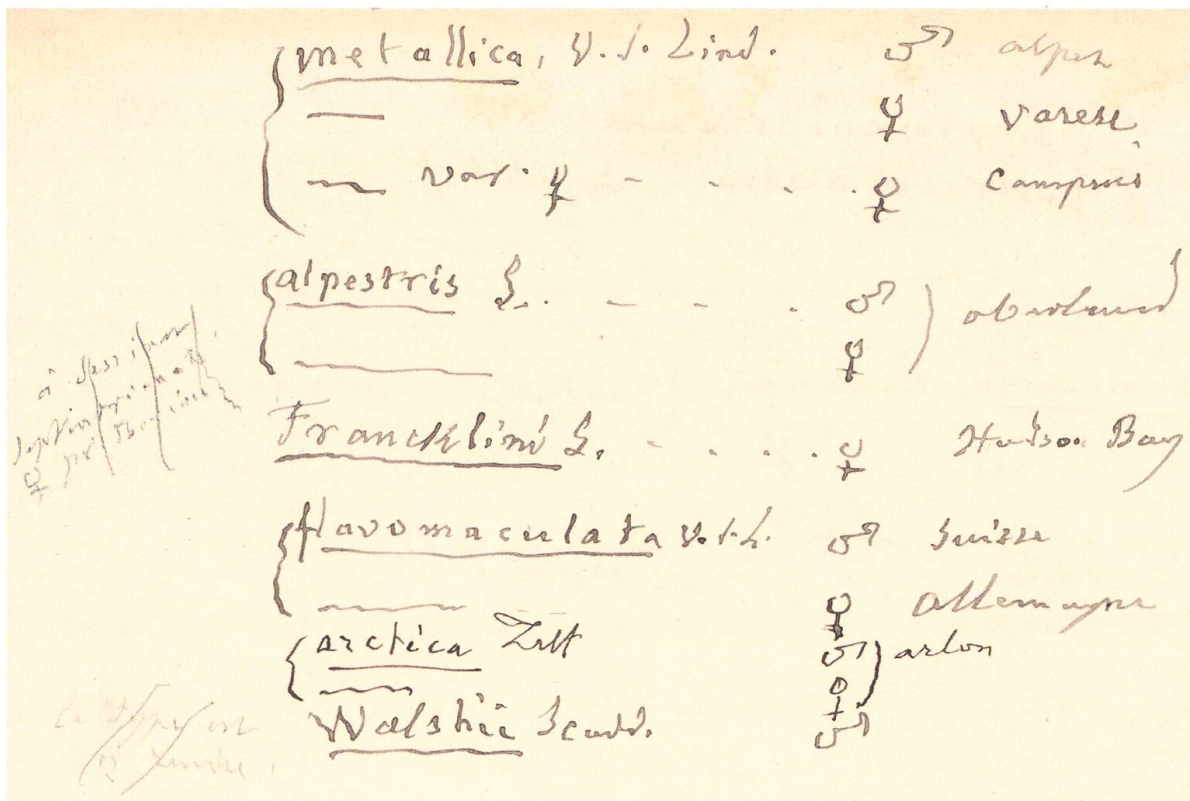 metallica, V. d. Lind. ♂ alpes
— ♀ Varese
— var. ♀ - - . . . ♀
alpestris S. . - - . ♂ oberland
— ♀
Francklini S. - . . . ♀ Hudson Bay
flavomaculata V.d.L. ♂ Suisse
— ♀ allemagne
arctica Zett ♂ arlon
— ♀
Walshii Scudd. ♂